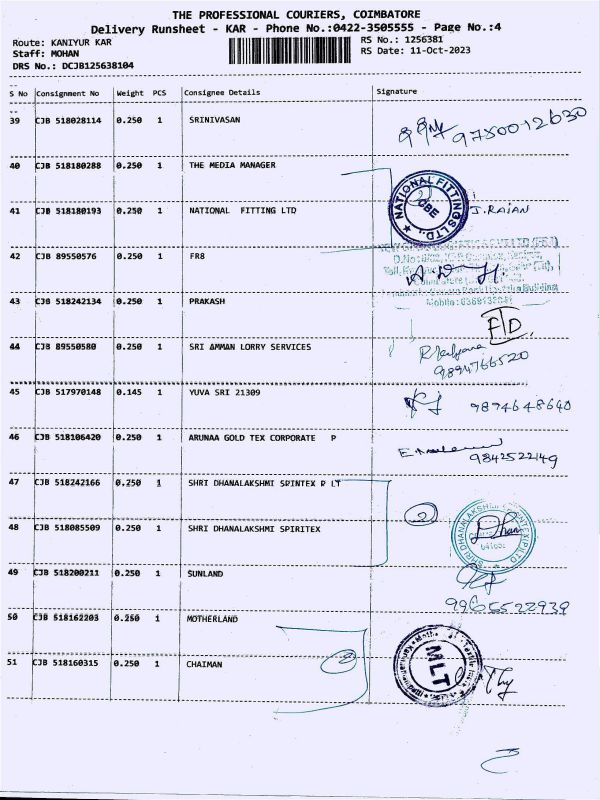 THE PROFESSIONAL COURIERS, COIMBATORE
Delivery Runsheet - KAR - Phone No.:0422-3505555 - Page No.:4
Route: KANIYUR KAR
RS No.: 1256381
Staff: MOHAN
RS Date: 11-Oct-2023
DRS No.: DCJB125638104
S No Consignment No Weight PCS Consignee Details Signature
39 CJB 518028114 0.250 1 SRINIVASAN
9750012630
40 CJB 518180288 0.250 1 THE MEDIA MANAGER
41 CJB 518180193 0.250 1 NATIONAL FITTING LTD
NATIONAL FITTINGS LTD. CBE J. RAJAN
42 CJB 89550576 0.250 1 FR8
43 CJB 518242134 0.250 1 PRAKASH
44 CJB 89550580 0.250 1 SRI AMMAN LORRY SERVICES
9894766520
45 CJB 517970148 0.145 1 YUVA SRI 21309
9894648640
46 CJB 518106420 0.250 1 ARUNAA GOLD TEX CORPORATE P
9842522149
47 CJB 518242166 0.250 1 SHRI DHANALAKSHMI SPINTEX P LT
2
48 CJB 518085509 0.250 1 SHRI DHANALAKSHMI SPIRITEX
SHRI DHANALAKSHMI SPINTEX (P) LTD
49 CJB 518200211 0.250 1 SUNLAND
9965522939
50 CJB 518162203 0.250 1 MOTHERLAND
51 CJB 518160315 0.250 1 CHAIMAN
2
MLT